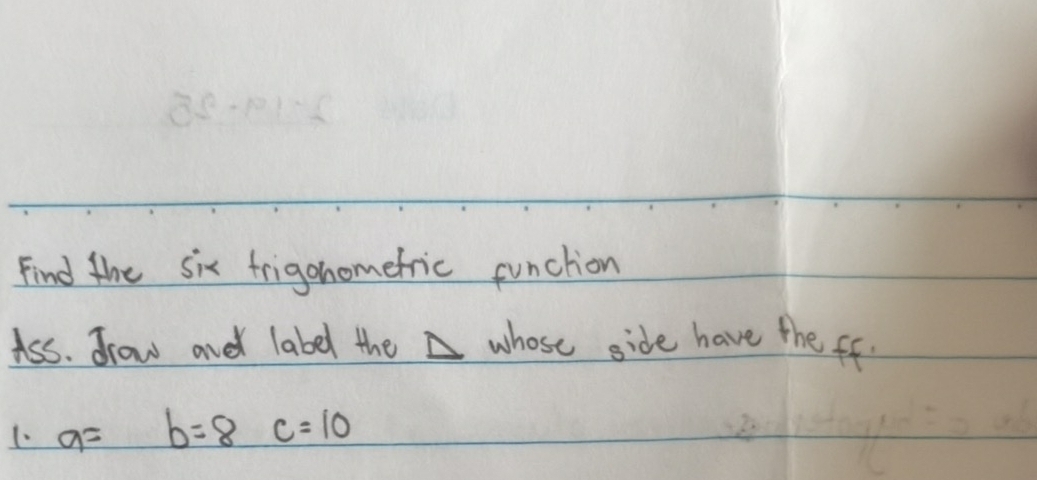 Find the six trigonometric function
Ass. Draw and label the △ whose side have the ff.
1. a= b=8 c=10